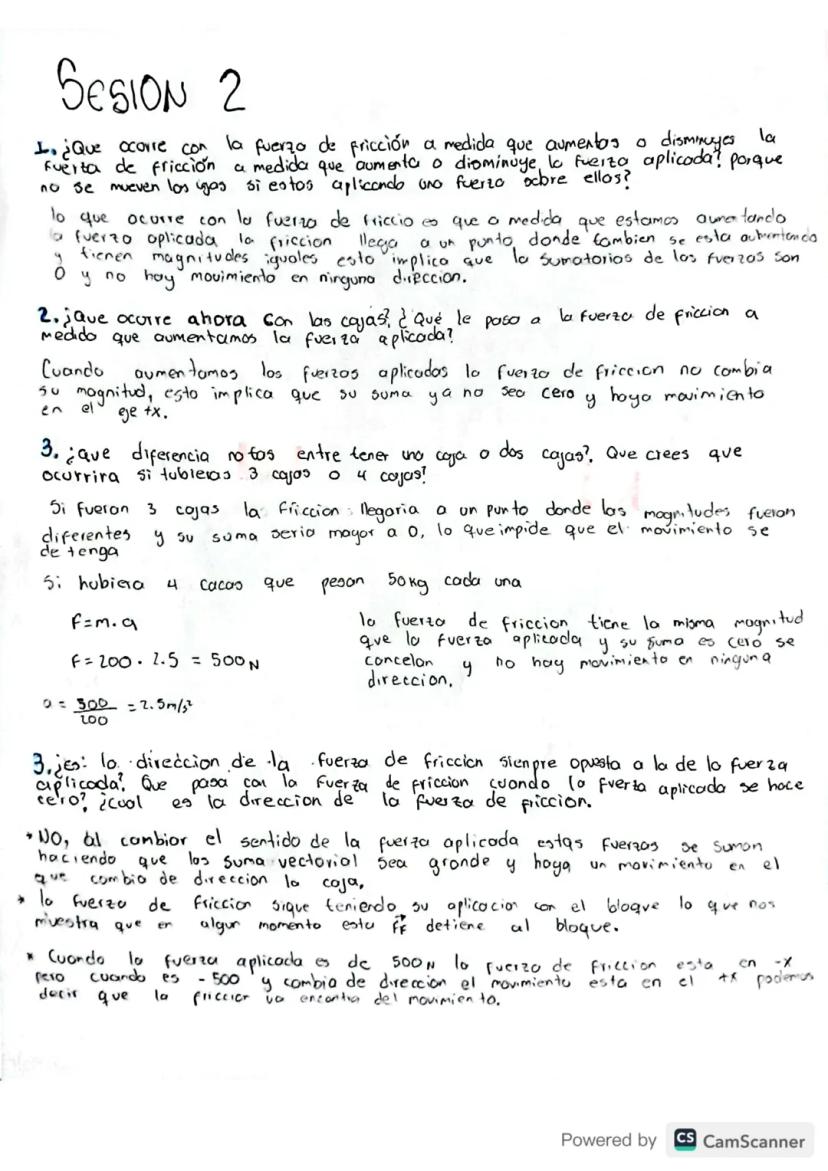 SESION 2
1. ¿Que ocorre con la fuerza de fricción a medida que aumentas o disminuyes la
fuerta de fricción a medida que aumenta o disminuye la fuerza aplicada? porque
no se mueven los ijas si estos aplicando una fuerza sobre ellos?
lo que ocurre con la fuerza de friccio es que a medida que estamos aumentando
la fuerza aplicada la friccion llega a un punto donde tambien se esta aumentando
y tienen magnitudes iguales esto implica que la sumatorios de las fuerzas son
0 y no hay movimiento en ninguna dirección.
2. ¿Que ocurre ahora con las cajas? ¿Qué le pasa a la fuerza de friccion a
medida que aumentamos la fuerza aplicada?
Cuando aumentamos las fuerzas aplicadas la fuerza de friccion no cambia
su magnitud, esto implica que su suma ya no sea cero y haya movimiento
en el eje +x.
3. ¿que diferencia notas entre tener una caja o dos cajas?, Que crees que
ocurrira si tubieras 3 cajas o 4 cajas?
Si fueran 3 cajas la friccion llegaria a un punto donde las magnitudes fueran
diferentes y su suma seria mayor a 0, lo que impide que el movimiento se
detenga
Si hubiera 4 cacas que pesan 50 kg cada una
F=m.a
F=200 . 2.5 = 500 N
a = 500/200 = 2.5m/s²
la fuerza de friccion tiene la misma magnitud
que la fuerza aplicada y su suma es cero se
concelan y no hay movimiento en ninguna
direccion.
3. ¿es: la direccion de la fuerza de friccion sienpre opuesta a la de la fuerza
aplicada? Que pasa con la fuerza de friccion cuando la fuerta aplicada se hace
cero? ¿cual es la direccion de la fuerza de friccion.
* NO, al cambiar el sentido de la fuerza aplicada estas fuerzas se suman
haciendo que las suma vectorial sea grande y haya un movimiento en el
que cambia de direccion la caja,
* la fuerza de friccion sigue teniendo su aplicacion con el bloque lo que nos
muestra que en algun momento esta Ff detiene al bloque.
* Cuando la fuerza aplicada es de 500 N la fuerza de friccion esta en -x
pero cuando es - 500 y cambia de direccion el movimiento esta en el +x podemos
decir que la friccion va encontra del movimiento.
Powered by CS CamScanner